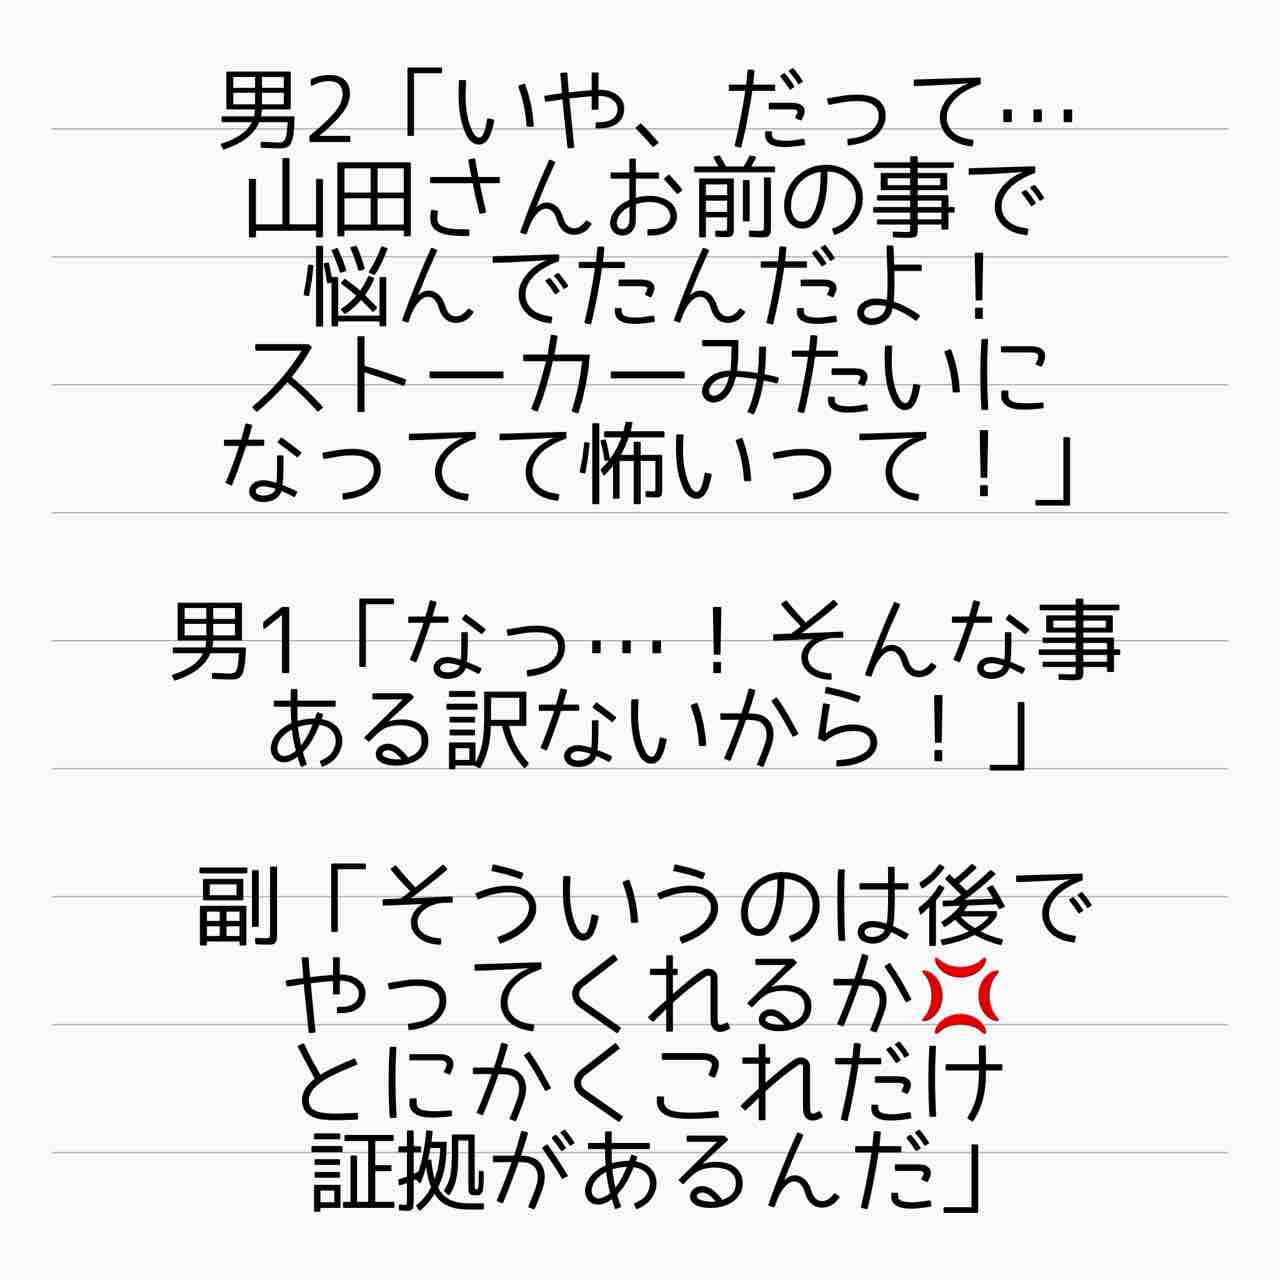 男2「いや、だって…
山田さんお前の事で
悩んでたんだよ！
ストーカーみたいに
なってて怖いって！」
男1「なっ…！そんな事
ある訳ないから！」
副「そういうのは後で
やってくれるか💢
とにかくこれだけ
証拠があるんだ」